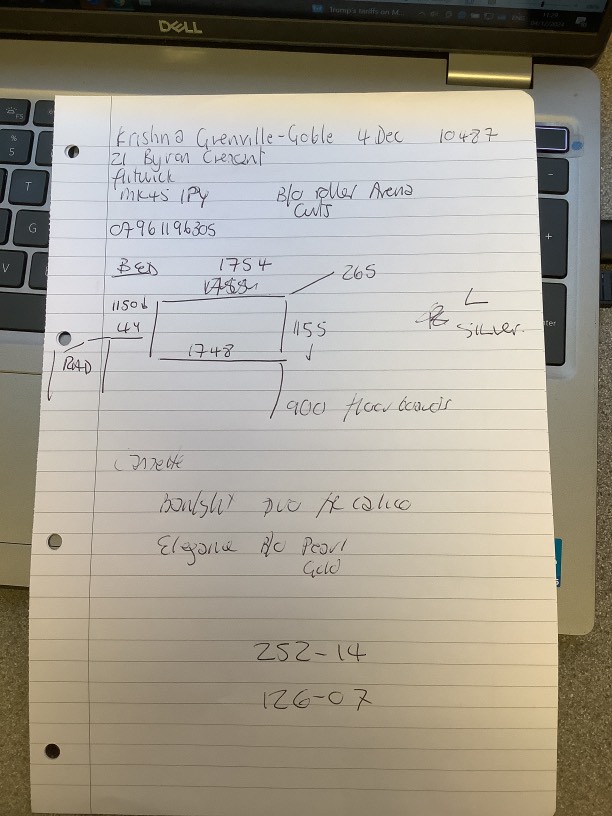 Trump's tariffs on M
DELL
Krishna Grenville-Goble 4 Dec 10487
21 Byron Crescent
flitwick
MK45 1PY B/O roller Arena
Cuts
07961196305
BED 1754
265
1150↓
44 1155
L
silver.
1748
RAD
900 floorboards
Duo calico
Elegance B/O Pearl
Gold
252-14
126-07